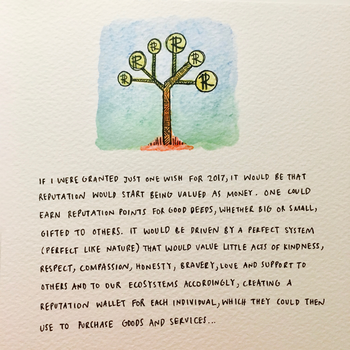 R R R R R R
IF I WERE GRANTED JUST ONE WISH FOR 2017, IT WOULD BE THAT
REPUTATION WOULD START BEING VALUED AS MONEY. ONE COULD
EARN REPUTATION POINTS FOR GOOD DEEDS, WHETHER BIG OR SMALL,
GIFTED TO OTHERS. IT WOULD BE DRIVEN BY A PERFECT SYSTEM
(PERFECT LIKE NATURE) THAT WOULD VALUE LITTLE ACTS OF KINDNESS,
RESPECT, COMPASSION, HONESTY, BRAVERY, LOVE AND SUPPORT TO
OTHERS AND TO OUR ECOSYSTEMS ACCORDINGLY, CREATING A
REPUTATION WALLET FOR EACH INDIVIDUAL, WHICH THEY COULD THEN
USE TO PURCHASE GOODS AND SERVICES...